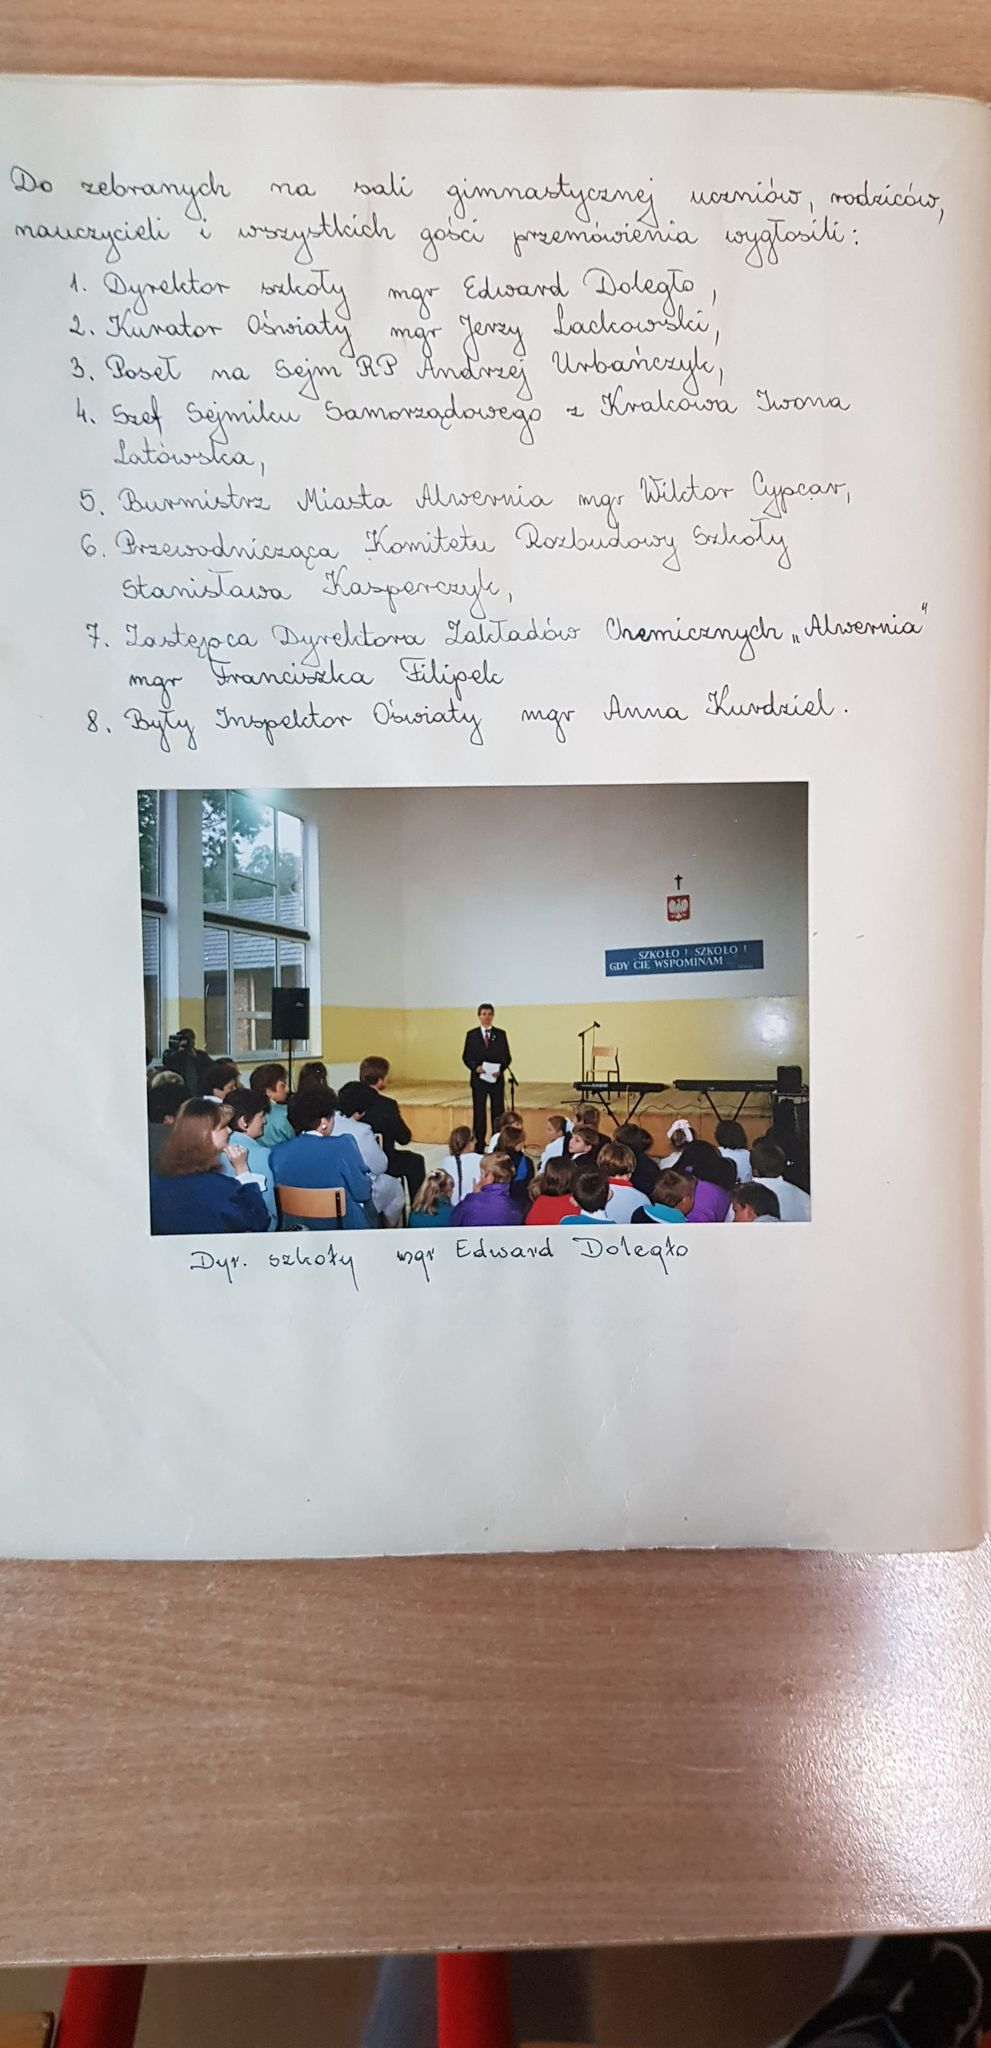 Do zebranych na sali gimnastycznej uczniów, rodziców,
nauczycieli i wszystkich gości przemówienia wygłosili:
1. Dyrektor szkoły mgr Edward Doległo,
2. Kurator Oświaty mgr Jerzy Lackowski,
3. Poseł na Sejm RP Andrzej Urbańczyk,
4. Szef Sejmiku Samorządowego z Krakowa Iwona
Latowska,
5. Burmistrz Miasta Alwernia mgr Wiktor Cypcar,
6. Przewodnicząca Komitetu Rozbudowy Szkoły
Stanisława Kasperczyk,
7. Zastępca Dyrektora Zakładów Chemicznych „Alwernia"
mgr Franciszka Filipek
8. Były Inspektor Oświaty mgr Anna Kurdziel.
SZKOŁO! SZKOŁO!
GDY CIĘ WSPOMINAM
Dyr. szkoły mgr Edward Doległo